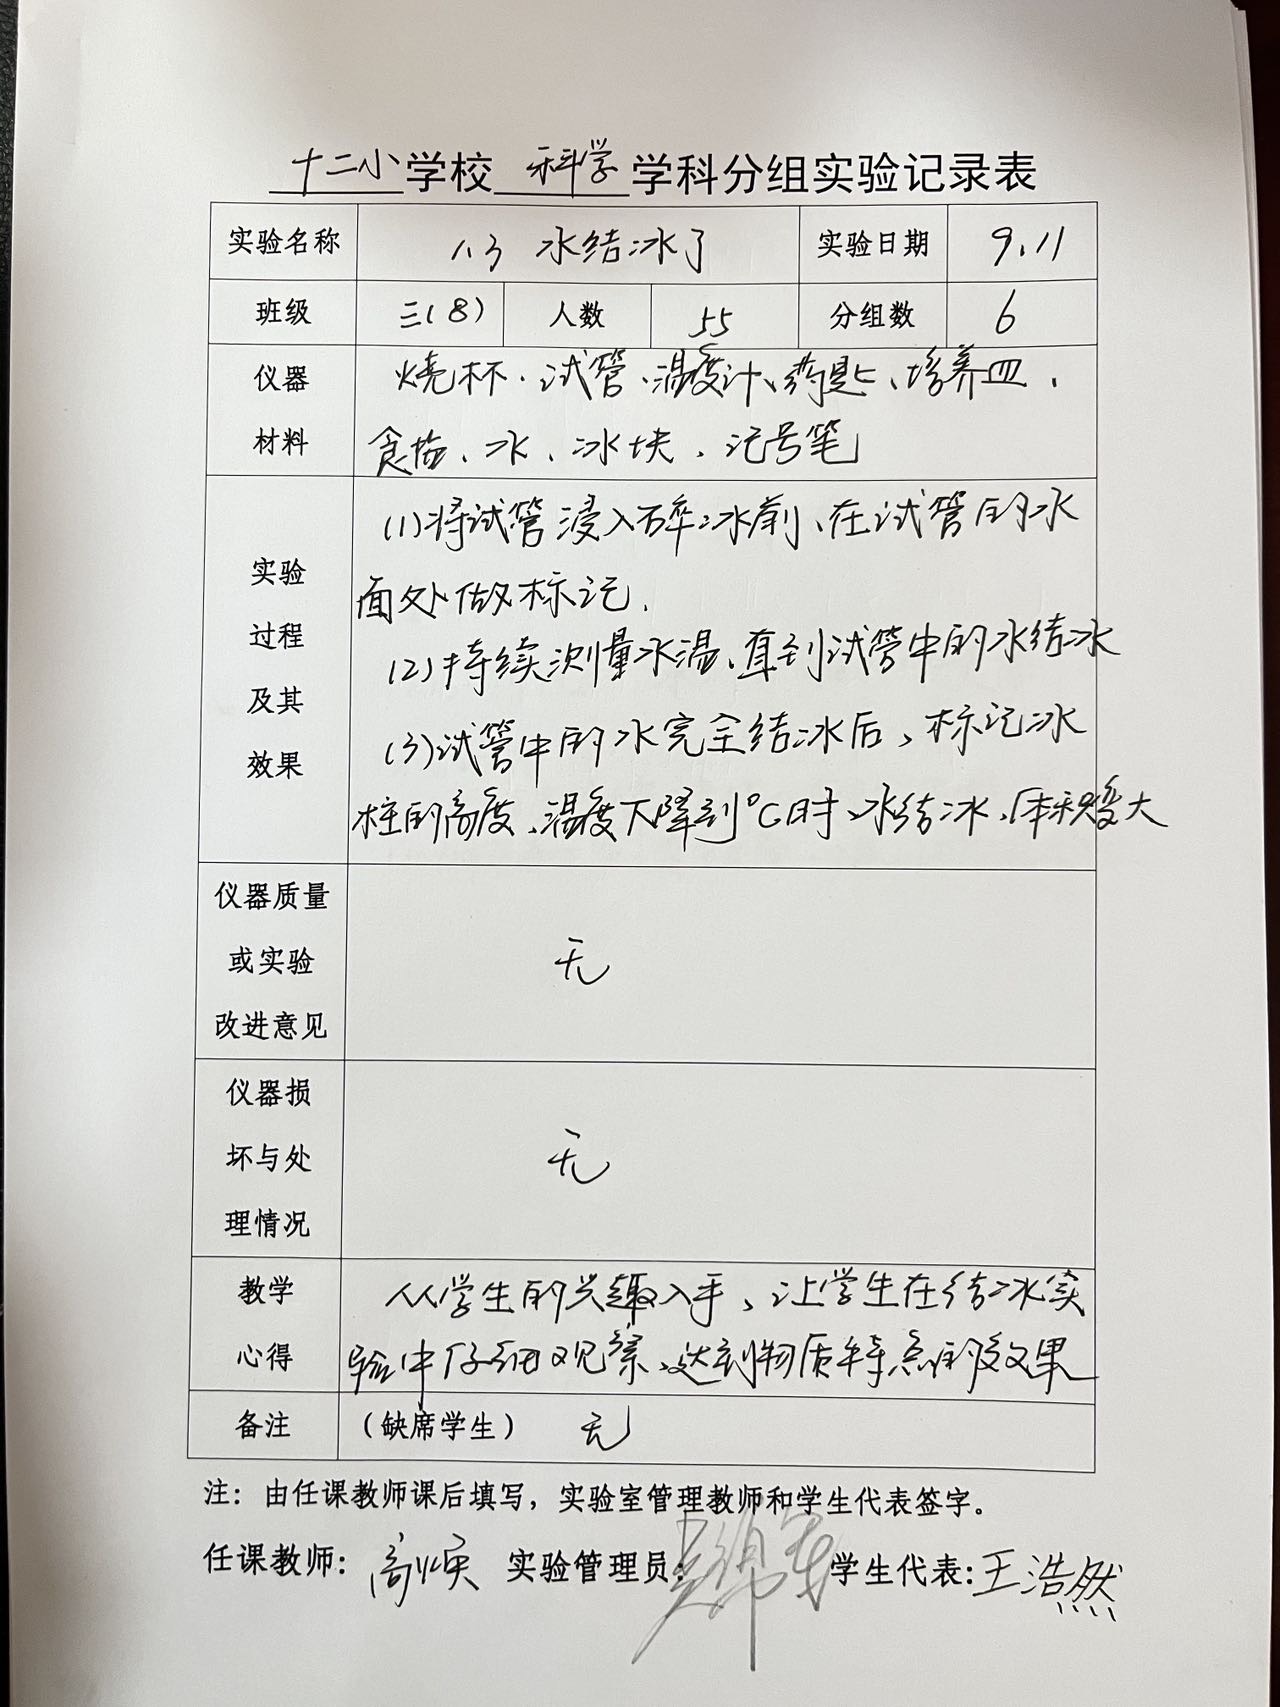 十二小学校 科学 学科分组实验记录表
实验名称 1.3 水结冰了 实验日期 9.11
班级 三(8) 人数 55 分组数 6
仪器 烧杯、试管、温度计、药匙、培养皿、
材料 食盐、水、冰块、记号笔
(1)将试管浸入碎冰前、在试管的水
实验 面处做标记.
过程 (2)持续测量水温、直到试管中的水结冰
及其 (3)试管中的水完全结冰后、标记冰
效果 柱的高度、温度下降到0℃时、水结冰、体积变大
仪器质量
或实验 无
改进意见
仪器损
坏与处 无
理情况
教学 从学生的兴趣入手、让学生在结冰实
心得 验中仔细观察、达到物质特点的效果
备注 (缺席学生) 无
注：由任课教师课后填写，实验室管理教师和学生代表签字。
任课教师: 高 实验管理员: 学生代表:王浩然